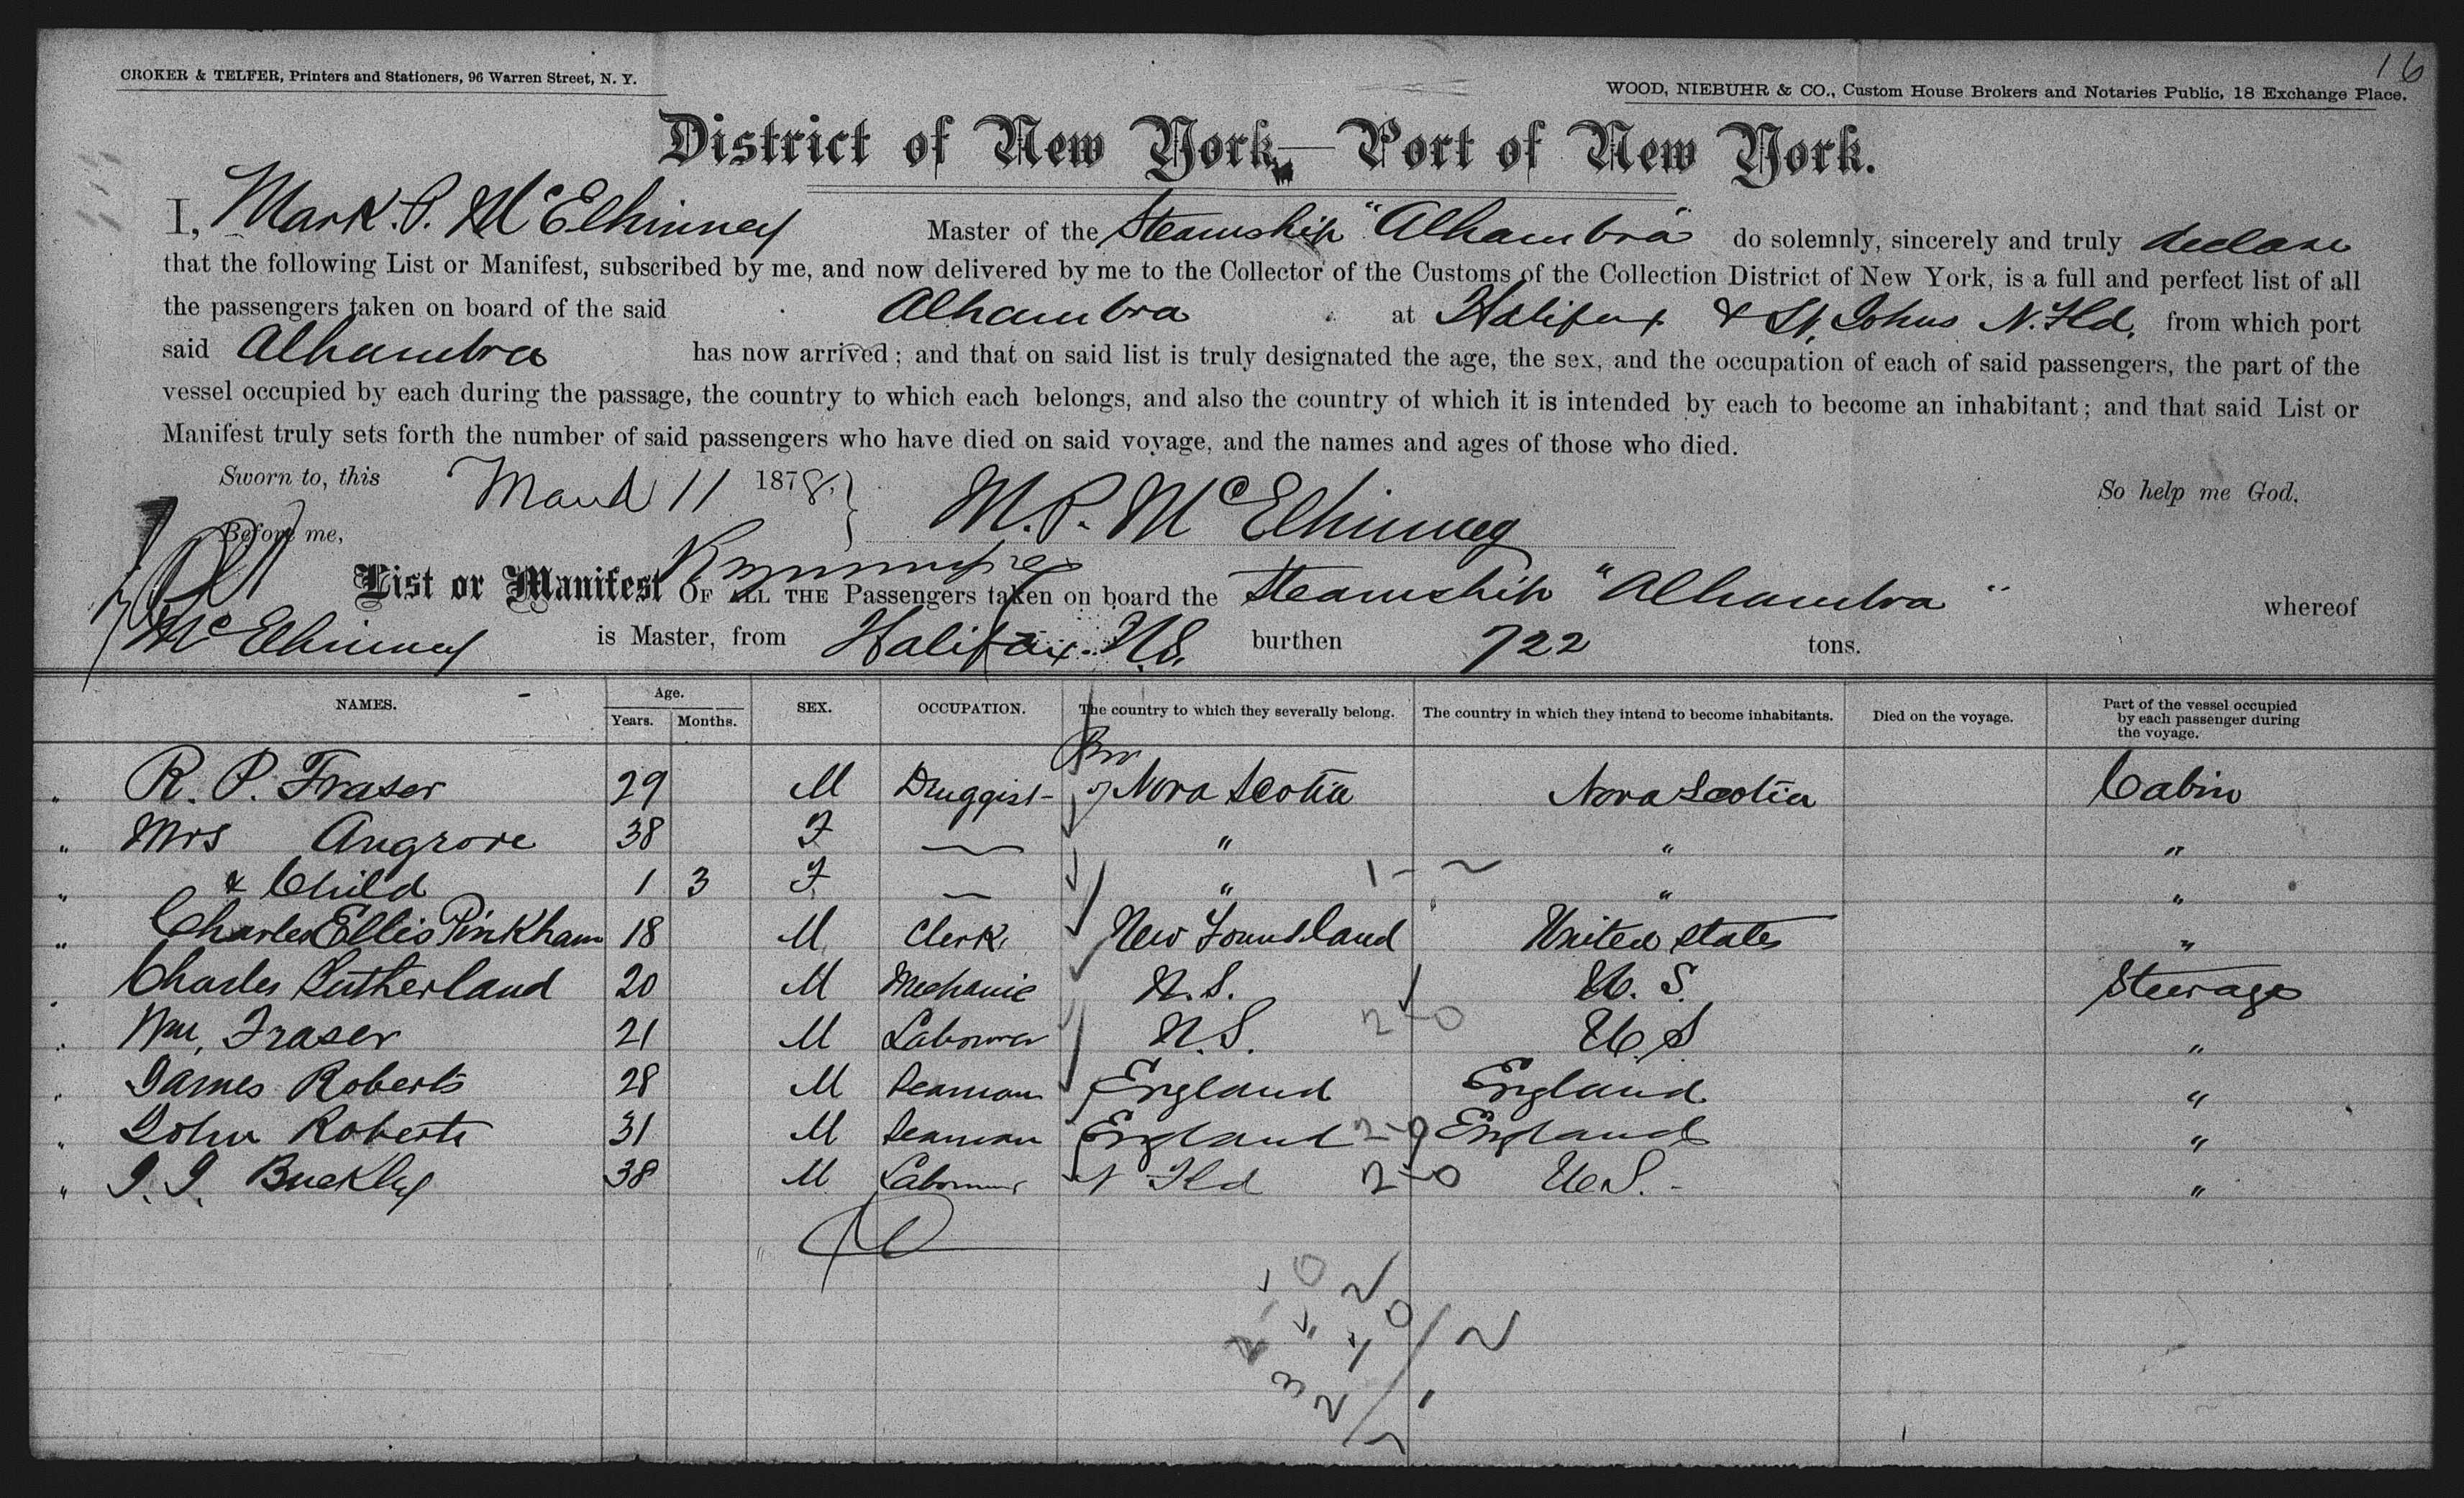 16
CROKER & TELFER, Printers and Stationers, 96 Warren Street, N. Y.
WOOD, NIEBUHR & CO., Custom House Brokers and Notaries Public, 18 Exchange Place.
District of New York, — Port of New York.
I, Mark. P. McElhinney Master of the Steamship "Alhambra" do solemnly, sincerely and truly declare
that the following List or Manifest, subscribed by me, and now delivered by me to the Collector of the Customs of the Collection District of New York, is a full and perfect list of all
the passengers taken on board of the said Alhambra at Halifax & St. Johns N. Fld. from which port
said Alhambra has now arrived; and that on said list is truly designated the age, the sex, and the occupation of each of said passengers, the part of the
vessel occupied by each during the passage, the country to which each belongs, and also the country of which it is intended by each to become an inhabitant; and that said List or
Manifest truly sets forth the number of said passengers who have died on said voyage, and the names and ages of those who died.
Sworn to, this March 11 1878. So help me God.
M. P. McElhinney
Before me,
List or Manifest OF ALL THE Passengers taken on board the Steamship "Alhambra" whereof
McElhinney is Master, from Halifax N.S. burthen 722 tons.
NAMES. Age. Years. Months. SEX. OCCUPATION. The country to which they severally belong. The country in which they intend to become inhabitants. Died on the voyage. Part of the vessel occupied by each passenger during the voyage.
R. P. Fraser 29 M Druggist Nova Scotia Nova Scotia Cabin
Mrs Angrove 38 F — " " "
& Child 1 3 F — " " "
Charles Ellis Pinkham 18 M Clerk New Foundland United States "
Charles Sutherland 20 M Mechanic N.S. U.S. Steerage
Wm. Fraser 21 M Labourer N.S. U.S "
James Roberts 28 M Seaman England England "
John Roberts 31 M Seaman England England "
J. J. Buckley 38 M Labourer N Fld U.S. "